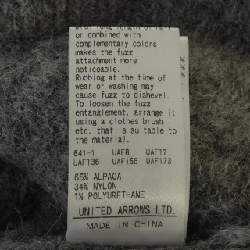 or combined with
complementary colors
makes the fuzz
attachment more
noticeable.
Rubbing at the time of
wear or washing may
cause fuzz to dishevel.
To loosen the fuzz
entanglement, arrange it
using a clothes brush
etc. that is suitable to
the material.
641-1 UAF8 UAF17
UAF136 UAF156 UAF173
65% ALPACA
34% NYLON
1% POLYURETHANE
UNITED ARROWS LTD.
MADE IN CHINA